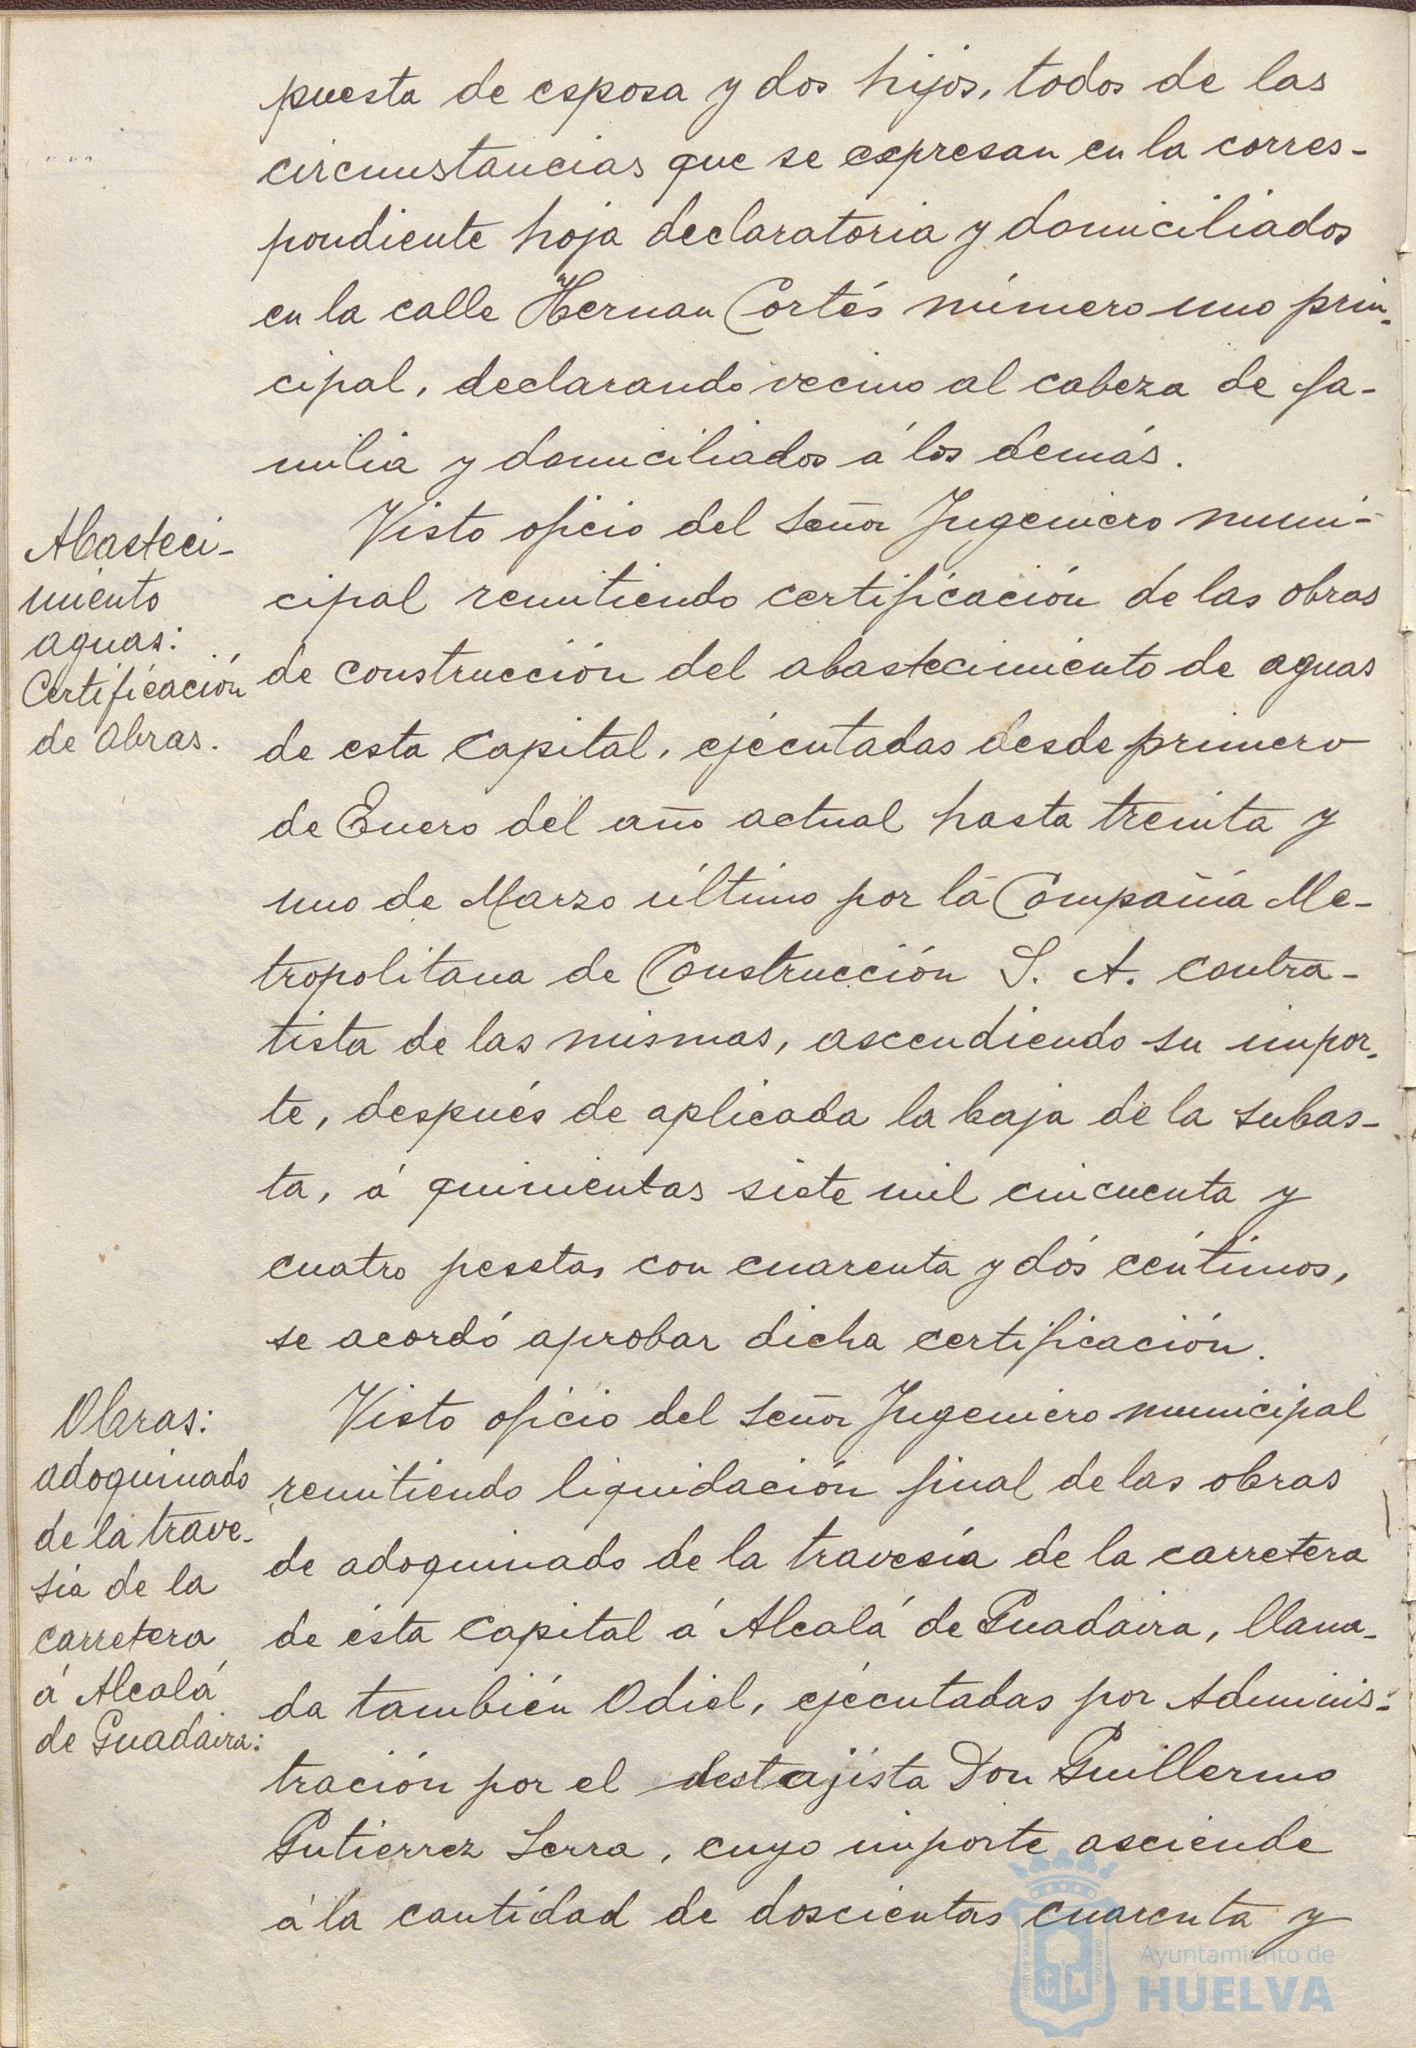 puesta de esposa y dos hijos, todos de las
circunstancias que se expresan en la corres-
pondiente hoja declaratoria y domiciliados
en la calle Hernan Cortés número uno prin-
cipal, declarando vecino al cabeza de fa-
milia y domiciliados á los demás.
Abasteci-
miento
aguas:
Certificación
de obras.
Visto oficio del señor Ingeniero muni-
cipal remitiendo certificación de las obras
de construcción del abastecimiento de aguas
de esta capital, ejecutadas desde primero
de Enero del año actual hasta treinta y
uno de Marzo último por la Compañia Me-
tropolitana de Construcción S. A. contra-
tista de las mismas, ascendiendo su impor-
te, después de aplicada la baja de la subas-
ta, á quinientas siete mil cincuenta y
cuatro pesetas con cuarenta y dós céntimos,
se acordó aprobar dicha certificación.
Obras:
adoquinado
de la trave-
sia de la
carretera
á Alcalá
de Guadaira:
Visto oficio del señor Ingeniero municipal
remitiendo liquidación final de las obras
de adoquinado de la travesía de la carretera
de ésta capital á Alcalá de Guadaira, llama-
da también Odiel, ejecutadas por Adminis-
tración por el destajista Don Guillermo
Gutierrez Serra, cuyo importe asciende
á la cantidad de doscientas cuarenta y
Ayuntamiento de
HUELVA